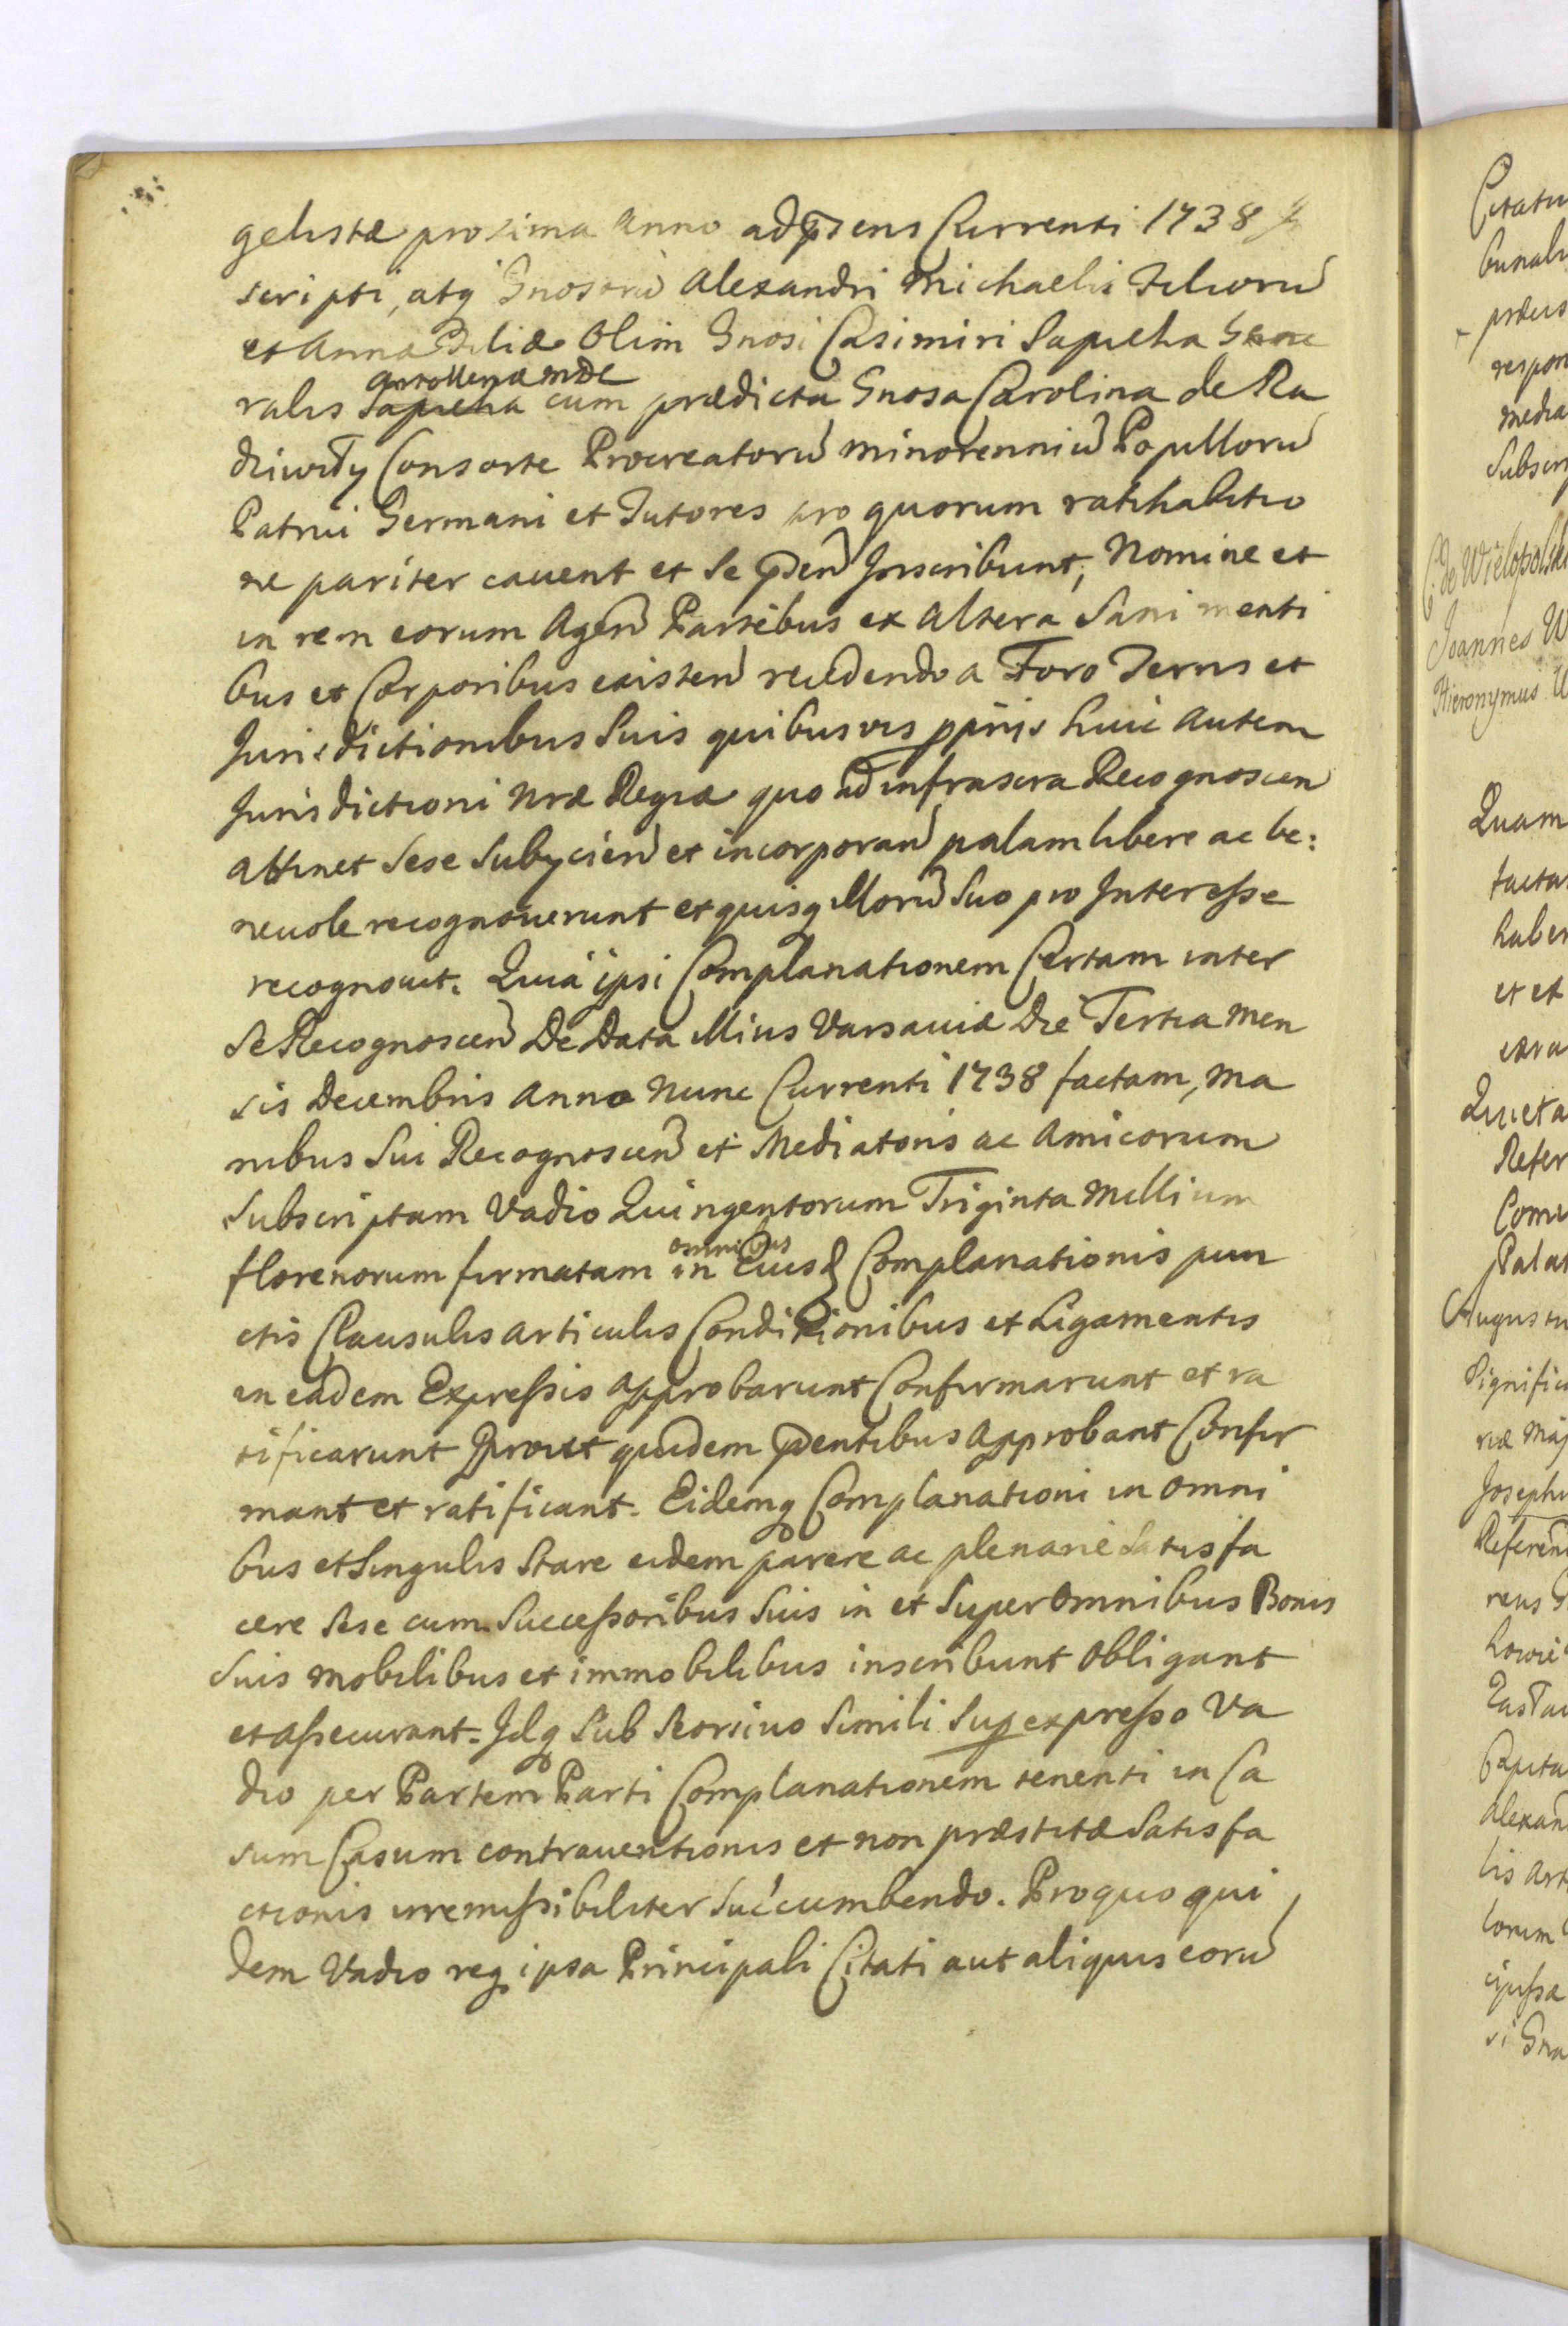 gelistæ proxima Anno adpsens Currenti 1738
scripti, atq Gnosorũ Alexandri Michaelis Filiorũ
et Anna Filiæ Olim Gnosi Casimiri Sapieha Gene
Artolleriæ MDL
ralis Sapieha cum prædicta Gnosa Carolina de Ra
diwiły Consorte Procreatorũ minorenniũ Pupillorũ
Patrui Germani et Tutores pro quorum ratihabitio
ne pariter cauent et se pñ Inscribunt, Nomine et
in rem eorum Agen Partibus ex Altera Sani menti
bus et Corporibus existen recedendo a Foro Terris et
Jurisdictionibus Suis quibusvis pprijs huic Autem
Jurisdictioni Nræ Regiæ quo ad infrascra Recognoscen
attinet sese Subycien et incorporan palam libere ac be:
neuole recognouerunt et quisq illorũ Suo pro Interesse
recognoscit. Quia ipsi Complanationem Certam inter
se Recognoscen De Data Illius Varsauiæ Die Tertia Men
sis Decembris Anno Nunc Currenti 1738 factam, Ma
nibus Sui Recognoscen et Mediatoris ac Amicorum
Subscriptam Vadio Quingentorum Triginta Millium
omnibus
florenorum firmatam in Eiusd Complanationis pun
ctis Clausulis articulis Conditionibus et Ligamentis
in eadem Expressis Approbarunt Confirmarunt et ra
tificarunt Prout quidem pñtibus Approbant Confir
mant et ratificant. Eidemq Complanationi in Omni
bus et Singulis Stare eidem parere ac plenarie Satisfa
cere Sese cum Successoribus Suis in et Super Omnibus Bonis
Suis Mobilibus et immobilibus inscribunt Obligant
et Assecurant. Idq Sub Seorsiuo Simili Sup expresso Va
dio per Partem Parti Complanationem tenenti in Ca
sum Casum contrauentionis et non præstitæ Satisfa
ctionis irremissibiliter Succumbendo. Pro quo qui
dem Vadio req ipsa Principali Citati aut aliquis eorũ
Citatu
præus
respon
media
Subscri
C. de Wielopolski
Joannes W
Hieronymus W
Quam
facta
haber
et et
Quieta
Refer
Palat
Augustu
Signific
riæ Maj
Josephu
Referen
Capita
Alexan
lis Art